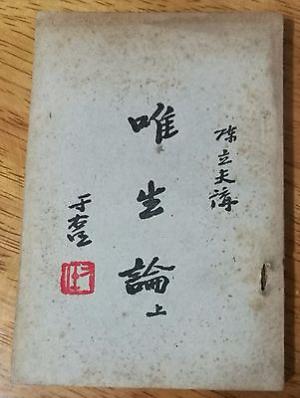 陳立夫講
唯生論上
于右任